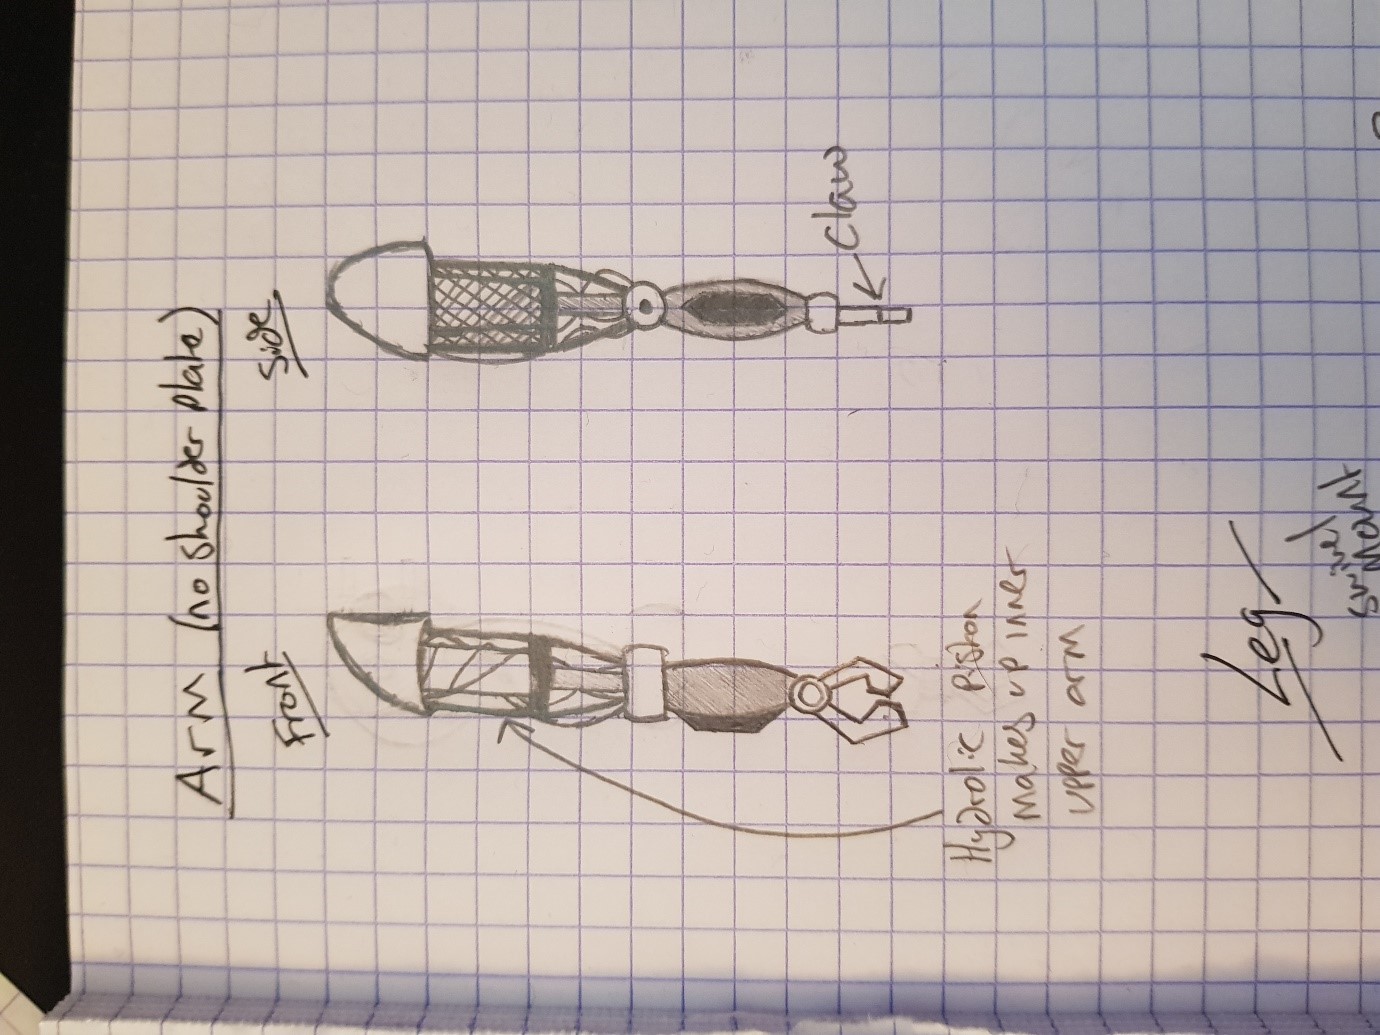 Arm (no shoulder plate)
Front
Side
Claw
Hydrolic Piston
makes up inner
upper arm
Leg
Swivel
Mount